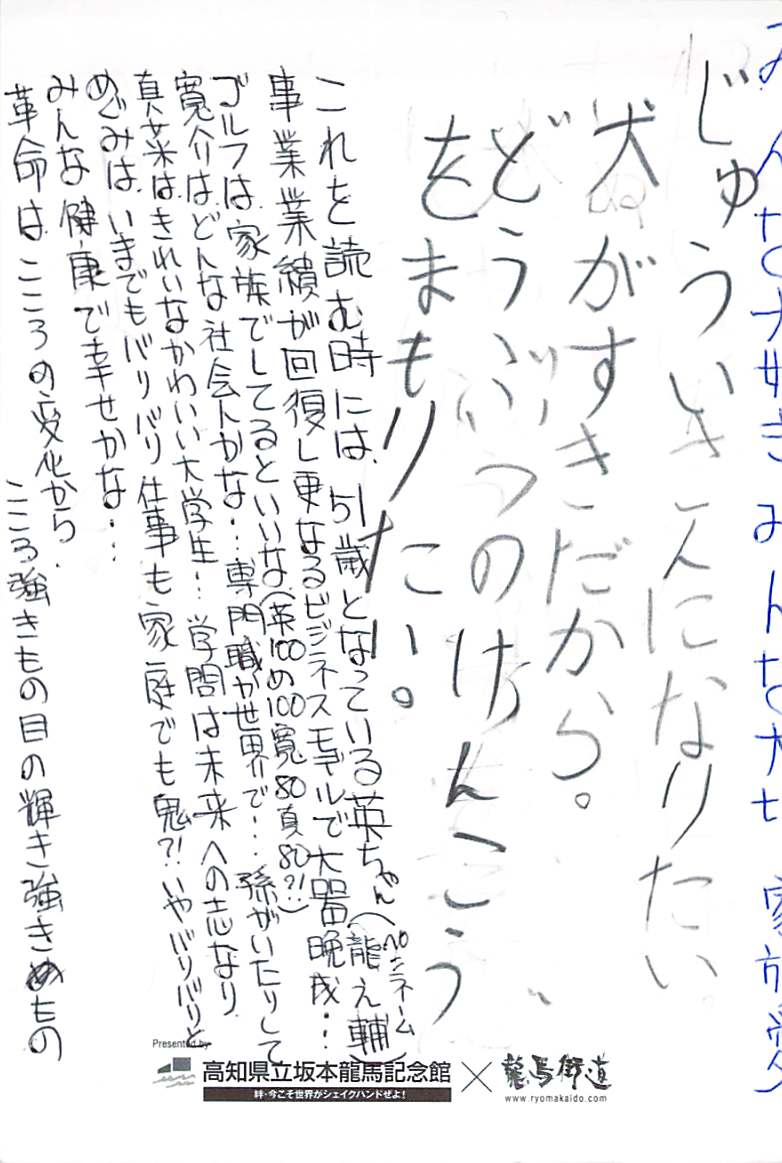 みんな大好き みんな大切 家族愛
じゅういさんになりたい
犬がすきだから。
どうぶつのけんこう
をまもりたい。
これを読む時には、51歳となっている英ちゃん(ペンネーム 龍之輔)
事業業績が回復し更なるビジネスモデルで大器晩成…
ゴルフは家族でしてるといいな(英100め100寛80真80?!)
寛介はどんな社会人かな…専門職か世界で…孫がいたりして
真菜はきれいなかわいい大学生…学問は未来への志なり
めぐみはいまでもバリバリ仕事も家庭でも鬼?!いやバリバリと
みんな健康で幸せかな…
革命はこころの変化から
こころ強きもの目の輝き強きめもの
Presented by
高知県立坂本龍馬記念館×龍馬街道
絆・今こそ世界がシェイクハンドぜよ!
www.ryomakaido.com